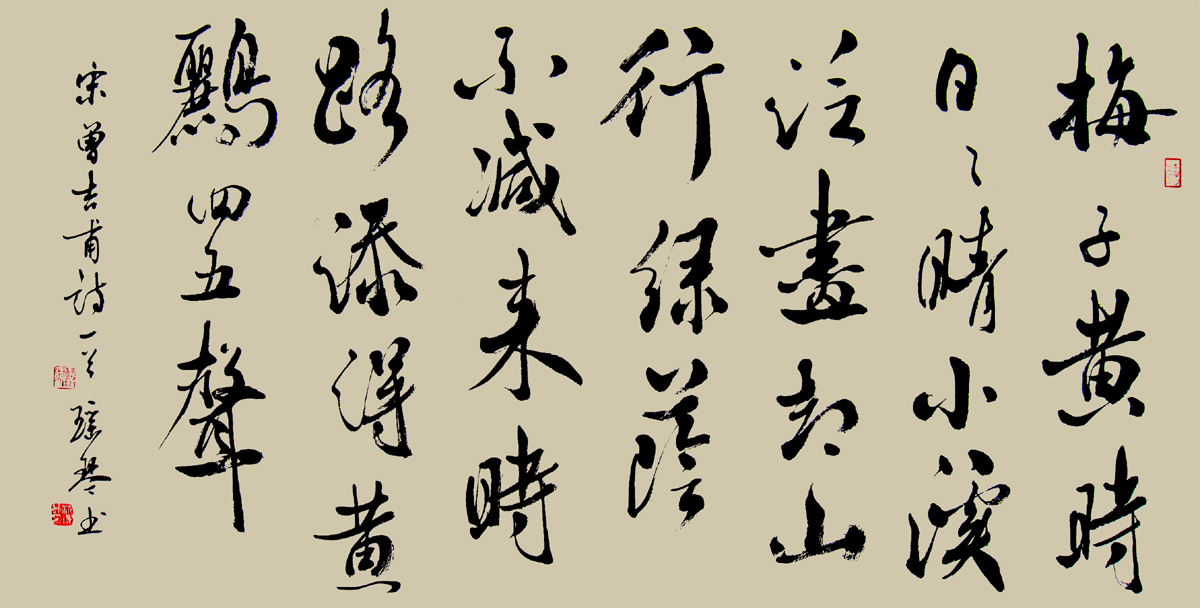 梅子黄時
日々晴小溪
泛盡却山
行緑蔭
不減来時
路添得黄
鸝四五聲
宋曾吉甫诗一首 瑶琴书